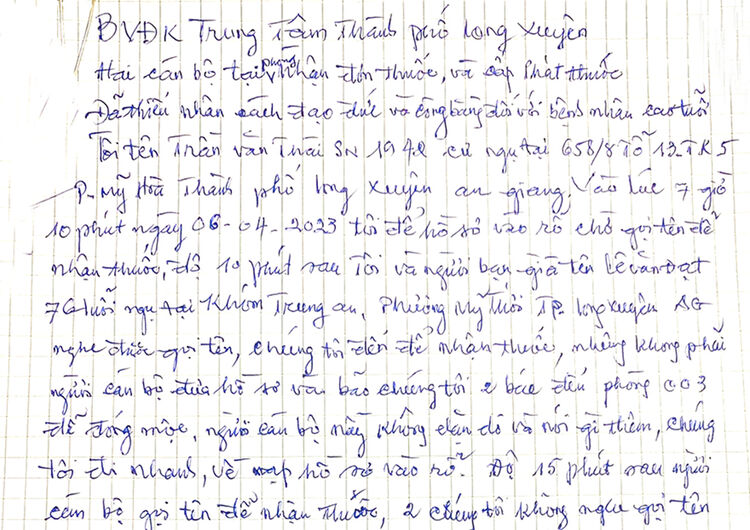 BVĐK Trung Tâm Thành phố Long Xuyên
Hai cán bộ tại phòng nhận đơn thuốc, và cấp phát thuốc
Đã thiếu nhân cách đạo đức và công bằng đối với bệnh nhân cao tuổi
Tôi tên Trần Văn Thái SN 1942 cư ngụ tại 658/8 Tổ 13-TK5
P. Mỹ Hoà Thành phố Long Xuyên an giang, Vào lúc 7 giờ
10 phút ngày 06-04-2023 tôi để hồ sơ vào rổ chờ gọi tên để
nhận thuốc, độ 10 phút sau Tôi và người bạn già tên Lê Văn Đạt
76 tuổi ngụ tại Khóm Trung an, Phường Mỹ Thới TP. Long Xuyên AG
nghe được gọi tên, chúng tôi đến để nhận thuốc, nhưng không phải
người cán bộ đưa hồ sơ và bảo chúng tôi 2 bác đến phòng 003
để đóng mộc, người cán bộ này không dặn dò và nói gì thêm, chúng
tôi đi nhanh, về nạp hồ sơ vào rổ. Độ 15 phút sau người
cán bộ gọi tên để nhận thuốc, 2 chúng tôi không nghe gọi tên